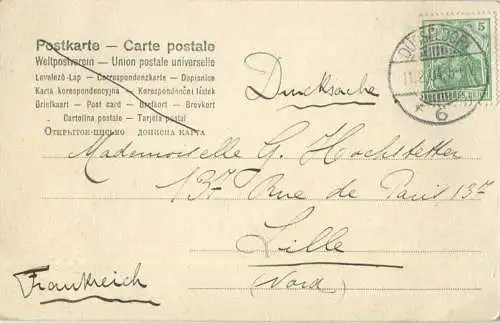 Postkarte – Carte postale
Weltpostverein – Union postale universelle
Levelező-Lap – Correspondenzkarte – Dopisnice
Karta korespondencyjna – Korespondenční lístek
Briefkaart – Post card – Brefkort – Brevkort
Cartolina postale – Tarjeta postal
Открытое письмо дописна карта
Drucksache
5
DÜSSELDORF
6
Mademoiselle G. Hochstetter
137 Rue de Paris 137
Lille
(Nord)
Frankreich